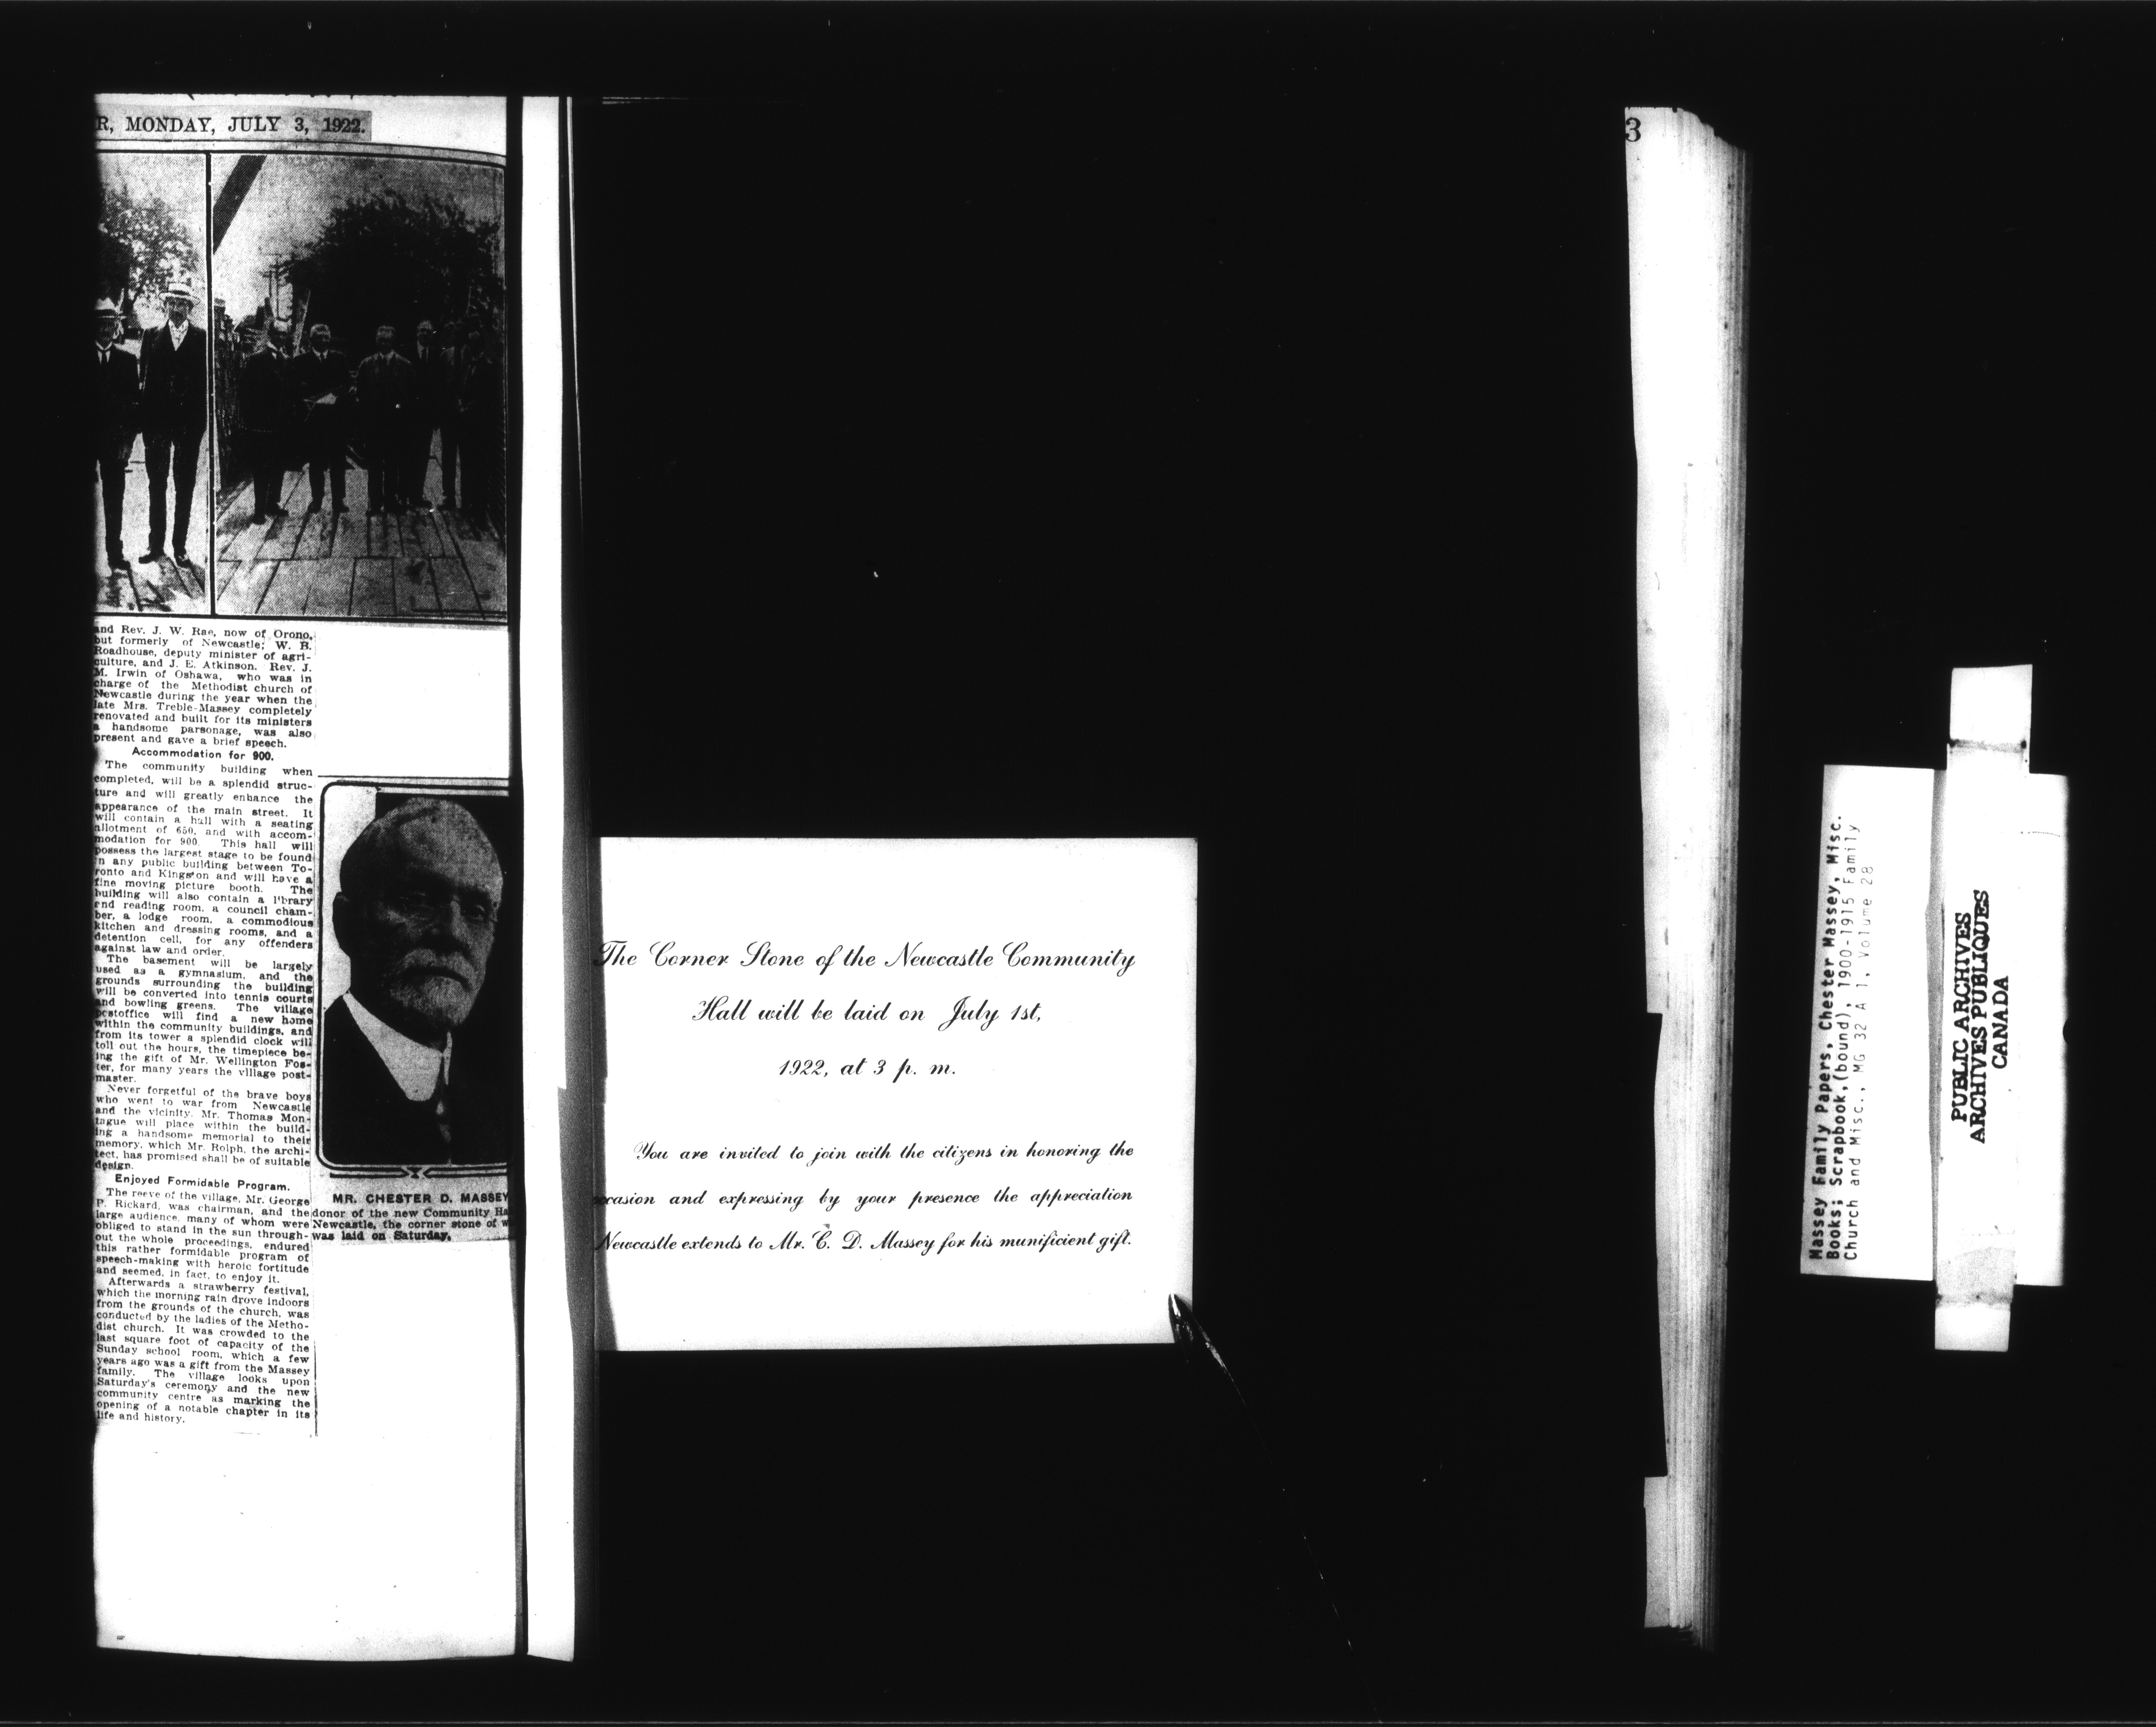 R, MONDAY, JULY 3, 1922.
and Rev. J. W. Rae, now of Orono,
but formerly of Newcastle; W. B.
Roadhouse, deputy minister of agri-
culture, and J. E. Atkinson. Rev. J.
M. Irwin of Oshawa, who was in
charge of the Methodist church of
Newcastle during the year when the
late Mrs. Treble-Massey completely
renovated and built for its ministers
a handsome parsonage, was also
present and gave a brief speech.
Accommodation for 900.
The community building when
completed, will be a splendid struc-
ture and will greatly enhance the
appearance of the main street. It
will contain a hall with a seating
allotment of 650, and with accom-
modation for 900. This hall will
possess the largest stage to be found
in any public building between To-
ronto and Kingston and will have a
fine moving picture booth. The
building will also contain a library
and reading room, a council cham-
ber, a lodge room, a commodious
kitchen and dressing rooms, and a
detention cell, for any offenders
against law and order.
The basement will be largely
used as a gymnasium, and the
grounds surrounding the building
will be converted into tennis courts
and bowling greens. The village
postoffice will find a new home
within the community buildings, and
from its tower a splendid clock will
toll out the hours, the timepiece be-
ing the gift of Mr. Wellington Fos-
ter, for many years the village post-
master.
Never forgetful of the brave boys
who went to war from Newcastle
and the vicinity, Mr. Thomas Mon-
tague will place within the build-
ing a handsome memorial to their
memory, which Mr. Rolph, the archi-
tect, has promised shall be of suitable
design.
Enjoyed Formidable Program.
The reeve of the village, Mr. George
P. Rickard, was chairman, and the
large audience, many of whom were
obliged to stand in the sun through-
out the whole proceedings, endured
this rather formidable program of
speech-making with heroic fortitude
and seemed, in fact, to enjoy it.
Afterwards a strawberry festival,
which the morning rain drove indoors
from the grounds of the church, was
conducted by the ladies of the Metho-
dist church. It was crowded to the
last square foot of capacity of the
Sunday school room, which a few
years ago was a gift from the Massey
family. The village looks upon
Saturday's ceremony and the new
community centre as marking the
opening of a notable chapter in its
life and history.
MR. CHESTER D. MASSEY
donor of the new Community Ha
Newcastle, the corner stone of w
was laid on Saturday.
The Corner Stone of the Newcastle Community
Hall will be laid on July 1st,
1922, at 3 p. m.
You are invited to join with the citizens in honoring the
occasion and expressing by your presence the appreciation
Newcastle extends to Mr. C. D. Massey for his munificient gift.
3
Massey Family Papers, Chester Massey, Misc.
Books; Scrapbook,(bound), 1900-1915 Family
Church and Misc., MG 32 A 1, Volume 28
PUBLIC ARCHIVES
ARCHIVES PUBLIQUES
CANADA